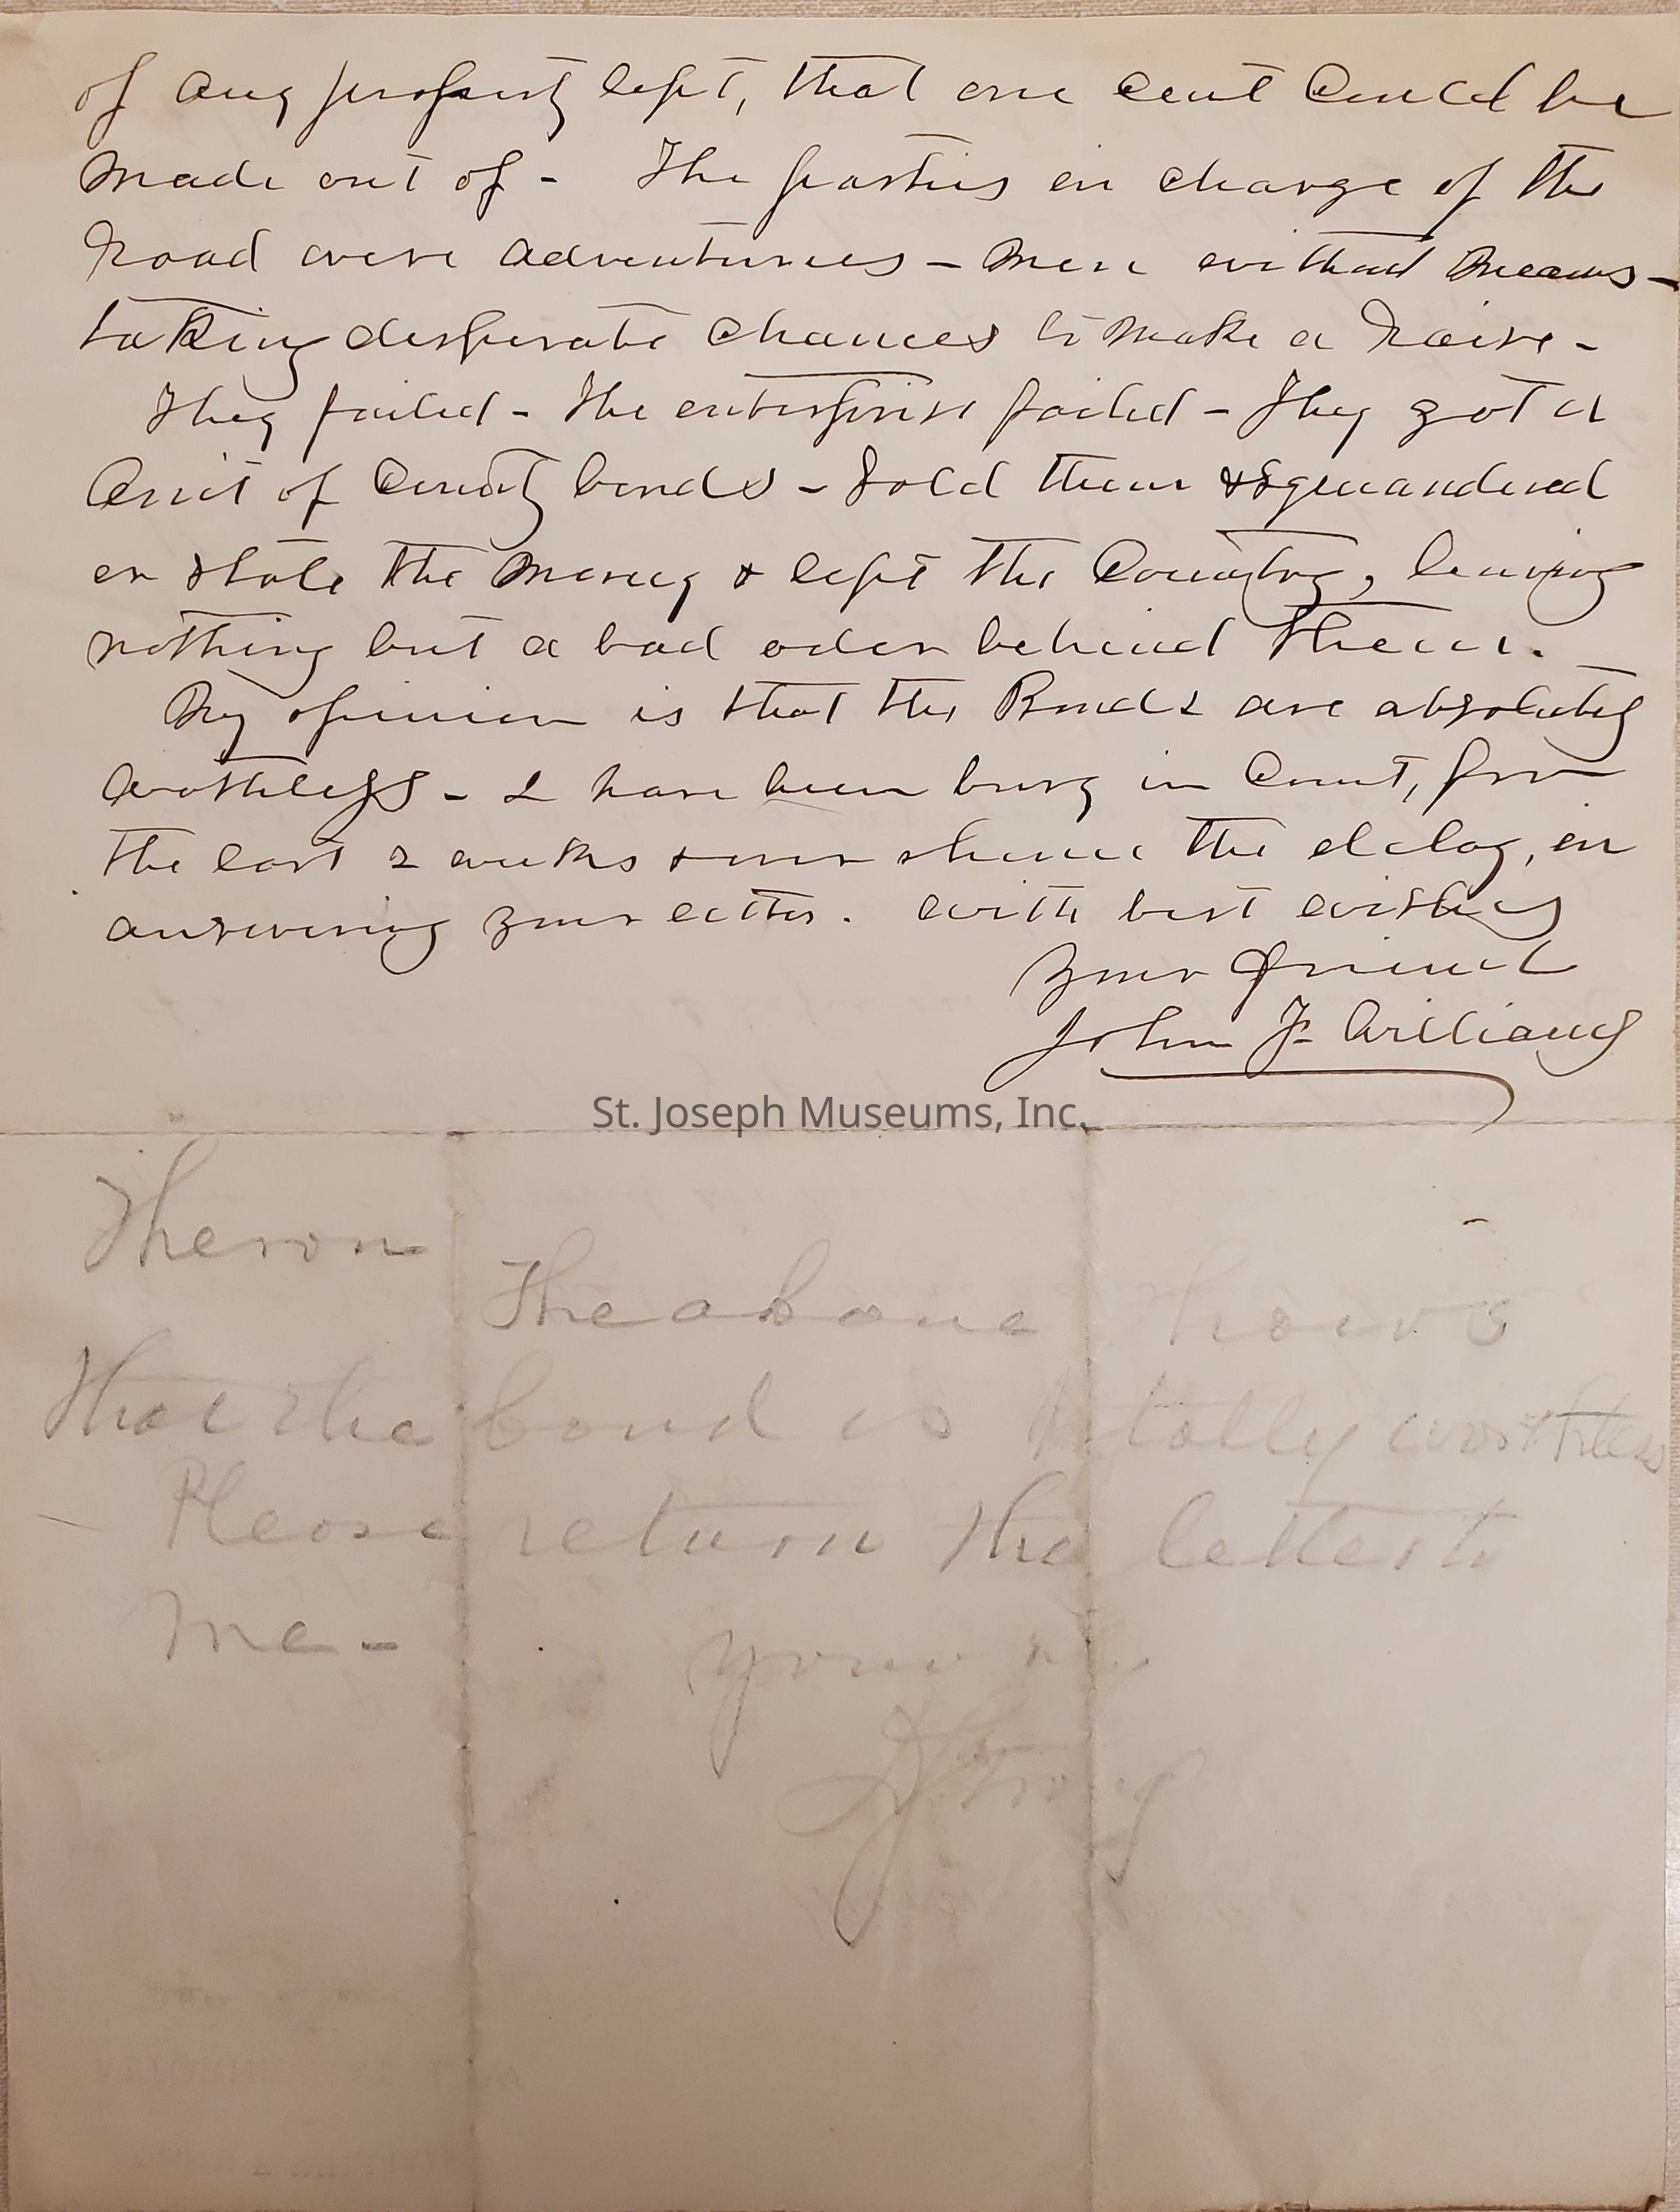 of any property left, that one cent could be
made out of - The parties in charge of the
road were adventurers - men without means -
taking desperate chances to make a raise -
They failed - The enterprise failed - They got a
lot of County bonds - sold them & squandered
or stole the money & left the Country, leaving
nothing but a bad odor behind them.
My opinion is that the Bonds are absolutely
worthless - I have been busy in Court, for
the last 2 weeks & hence the delay, in
answering your letter. with best wishes
Your friend
John F. Williams
St. Joseph Museums, Inc.
Theron
The above shows
that the bond is totally worthless
Please return the letter to
me -
Yours